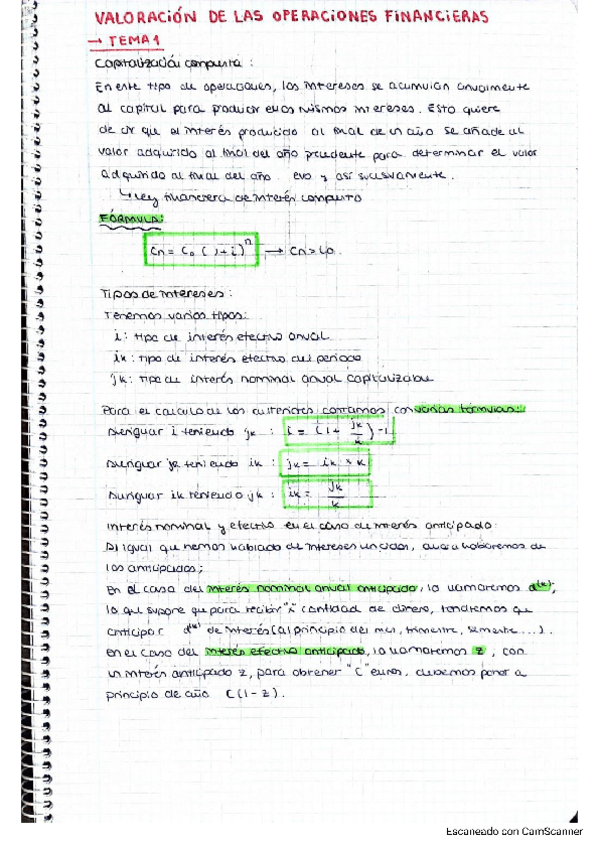 VALORACIÓN DE LAS OPERACIONES FINANCIERAS
→ TEMA 1
Capitalización compuesta :
En este tipo de operaciones, los intereses se acumulan anualmente
al capital para producir ellos mismos intereses. Esto quiere
decir que el interés producido al final de un año se añade al
valor adquirido al final del año precedente para determinar el valor
adquirido al final del año evo y así sucesivamente.
↳ Ley financiera de interés compuesto
FÓRMULA:
Cn = C₀ (1+i)ⁿ → Cn > C₀
Tipos de intereses :
Tenemos varios tipos:
i: tipo de interés efectivo anual
ik: tipo de interés efectivo del periodo
jk: tipo de interés nominal anual capitalizable
Para el cálculo de los anteriores contamos con varias fórmulas:
Averiguar i teniendo jk : i = (1 + jk/k) -1
Averiguar jk teniendo ik : jk = ik × k
Averiguar ik teniendo jk : ik = jk/k
Interés nominal y efectivo en el caso de interés anticipado:
Al igual que hemos hablado de intereses vencidos, ahora hablaremos de
los anticipados;
En el caso del interés nominal anual anticipado, lo llamaremos d⁽ᵏ⁾,
lo que supone que para recibir "1" cantidad de dinero, tendremos que
anticipar d⁽ᵏ⁾ de interés (al principio del mes, trimestre, semestre...).
En el caso del interés efectivo anticipado, lo llamaremos z, con
un interés anticipado z, para obtener "C" euros, debemos poner a
principio de año C(1-z).
Escaneado con CamScanner